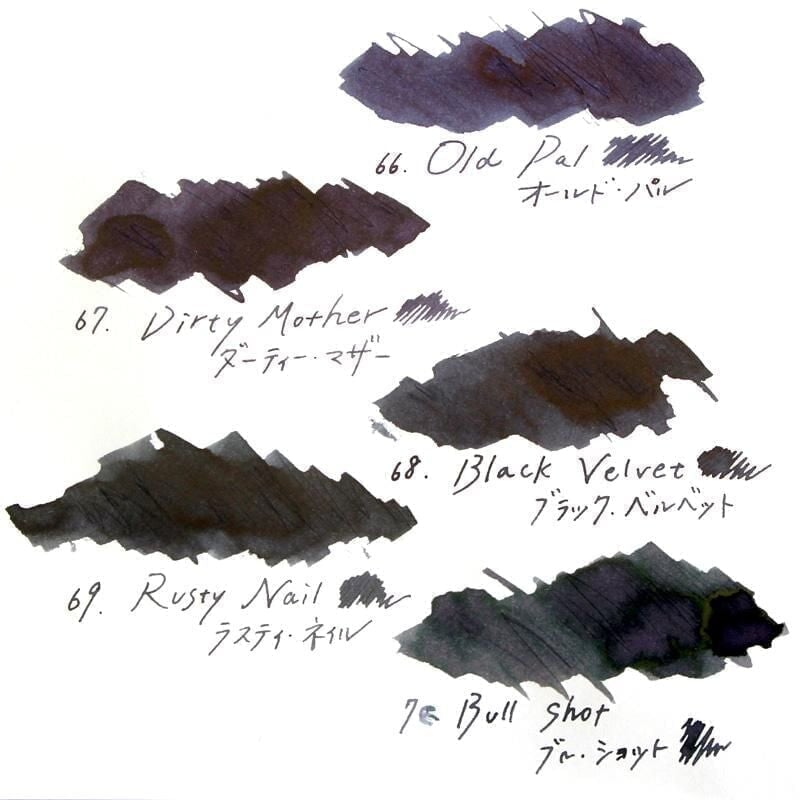 66. Old Pal
オールド・パル
67. Dirty Mother
ダーティー・マザー
68. Black Velvet
ブラック・ベルベット
69. Rusty Nail
ラスティ・ネイル
70 Bull Shot
ブル・ショット